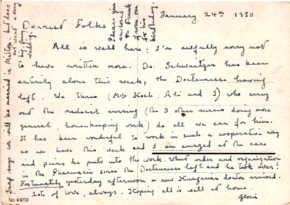 January 24th 1950
Dearest Folks
All is well here: I'm awfully sorry not
to have written more. Dr. Schweitzer has been
entirely alone this week, the Doctoress having
left. We three (Miss Kock, Ali and I) who carry
out the medical nursing (the 3 others nurses doing more
general, housekeeping work) do all we can for him.
It has been wonderful to work in such a cooperative way
as we have this week and I am amazed at the care
and pains he puts into the work. What order and organization
in the Pharmacie since the Doctoress left and he took over!
Fortunately, yesterday afternoon a new Hungarian doctor arrived.
Lots of love, always. Hoping all is well at home.